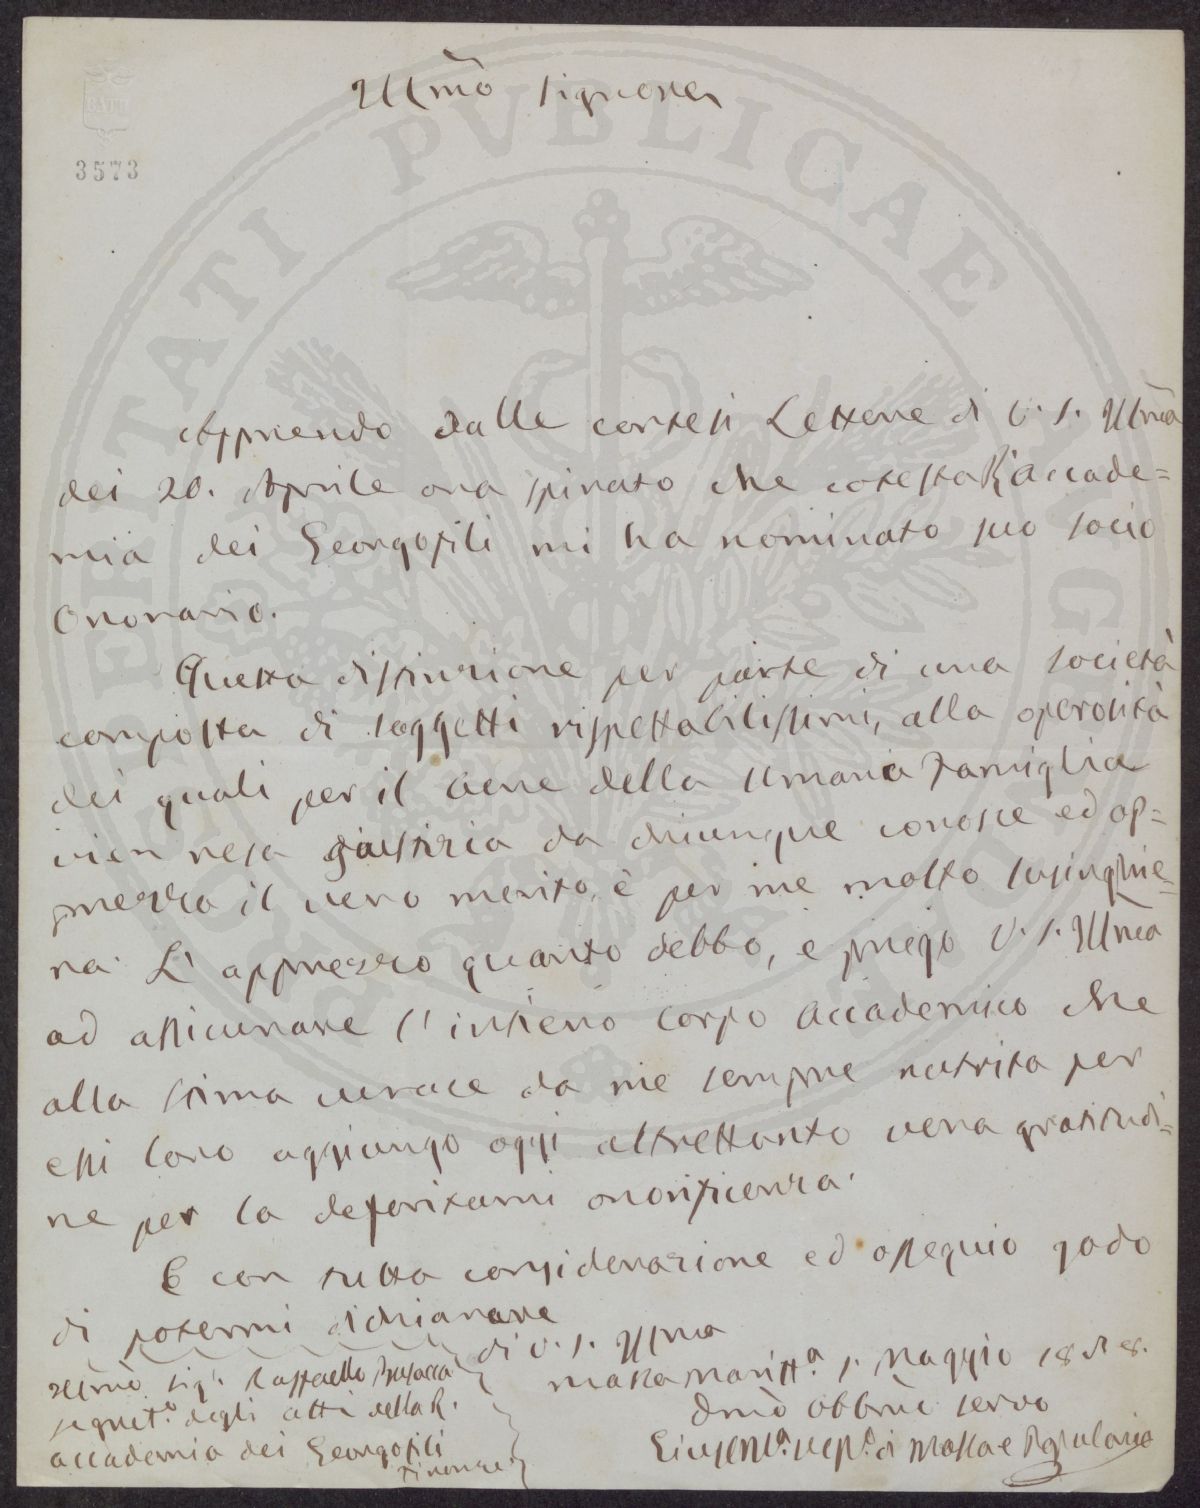 Illmo Signore
3573
Apprendo dalle cortesi Lettere di V. S. Illma
dei 20. Aprile ora spirato che cotesta R. Accade=
mia dei Georgofili mi ha nominato suo Socio
Onorario.
Questa distinzione per parte di una Società
composta di Soggetti rispettabilissimi, alla operosità
dei quali per il bene della Umana Famiglia
vien resa giustizia da chiunque conosce ed ap=
prezza il vero merito, è per me molto lusinghie=
ra. L'apprezzo quanto debbo, e prego V. S. Illma
ad assicurare l'intiero Corpo Accademico che
alla stima verace da me sempre nutrita per
essi loro aggiungo oggi altrettanto vera gratitudi=
ne per la deferitami onorificenza.
E con tutta considerazione ed ossequio godo
di potermi dichiarare
di V. S. Illma
Massa Maritt.a 1. Maggio
Dmo Obbmo Servo
Giuse M.a Vesp.o di Massa e Populonia
Illmo Sigr. Raffaello Busacca
Segret.o degli atti della R.
Accademia dei Georgofili
Firenze
PROSPERITATI PVBLICAE AVGENDAE